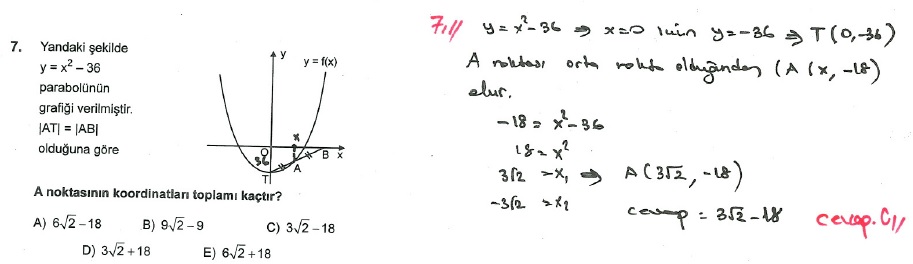 7. Yandaki şekilde
y = x² – 36
parabolünün
grafiği verilmiştir.
|AT| = |AB|
olduğuna göre
y
y = f(x)
x
O
B
x
36
A
T
A noktasının koordinatları toplamı kaçtır?
A) 6√2 – 18 B) 9√2 – 9 C) 3√2 – 18
D) 3√2 + 18 E) 6√2 + 18
7.// y = x² – 36 ⇒ x = 0 için y = –36 ⇒ T(0, –36)
A noktası orta nokta olduğundan (A(x, –18)
olur.
–18 = x² – 36
18 = x²
3√2 = x₁ ⇒ A(3√2, –18)
–3√2 = x₂
cevap = 3√2 – 18 cevap. C//